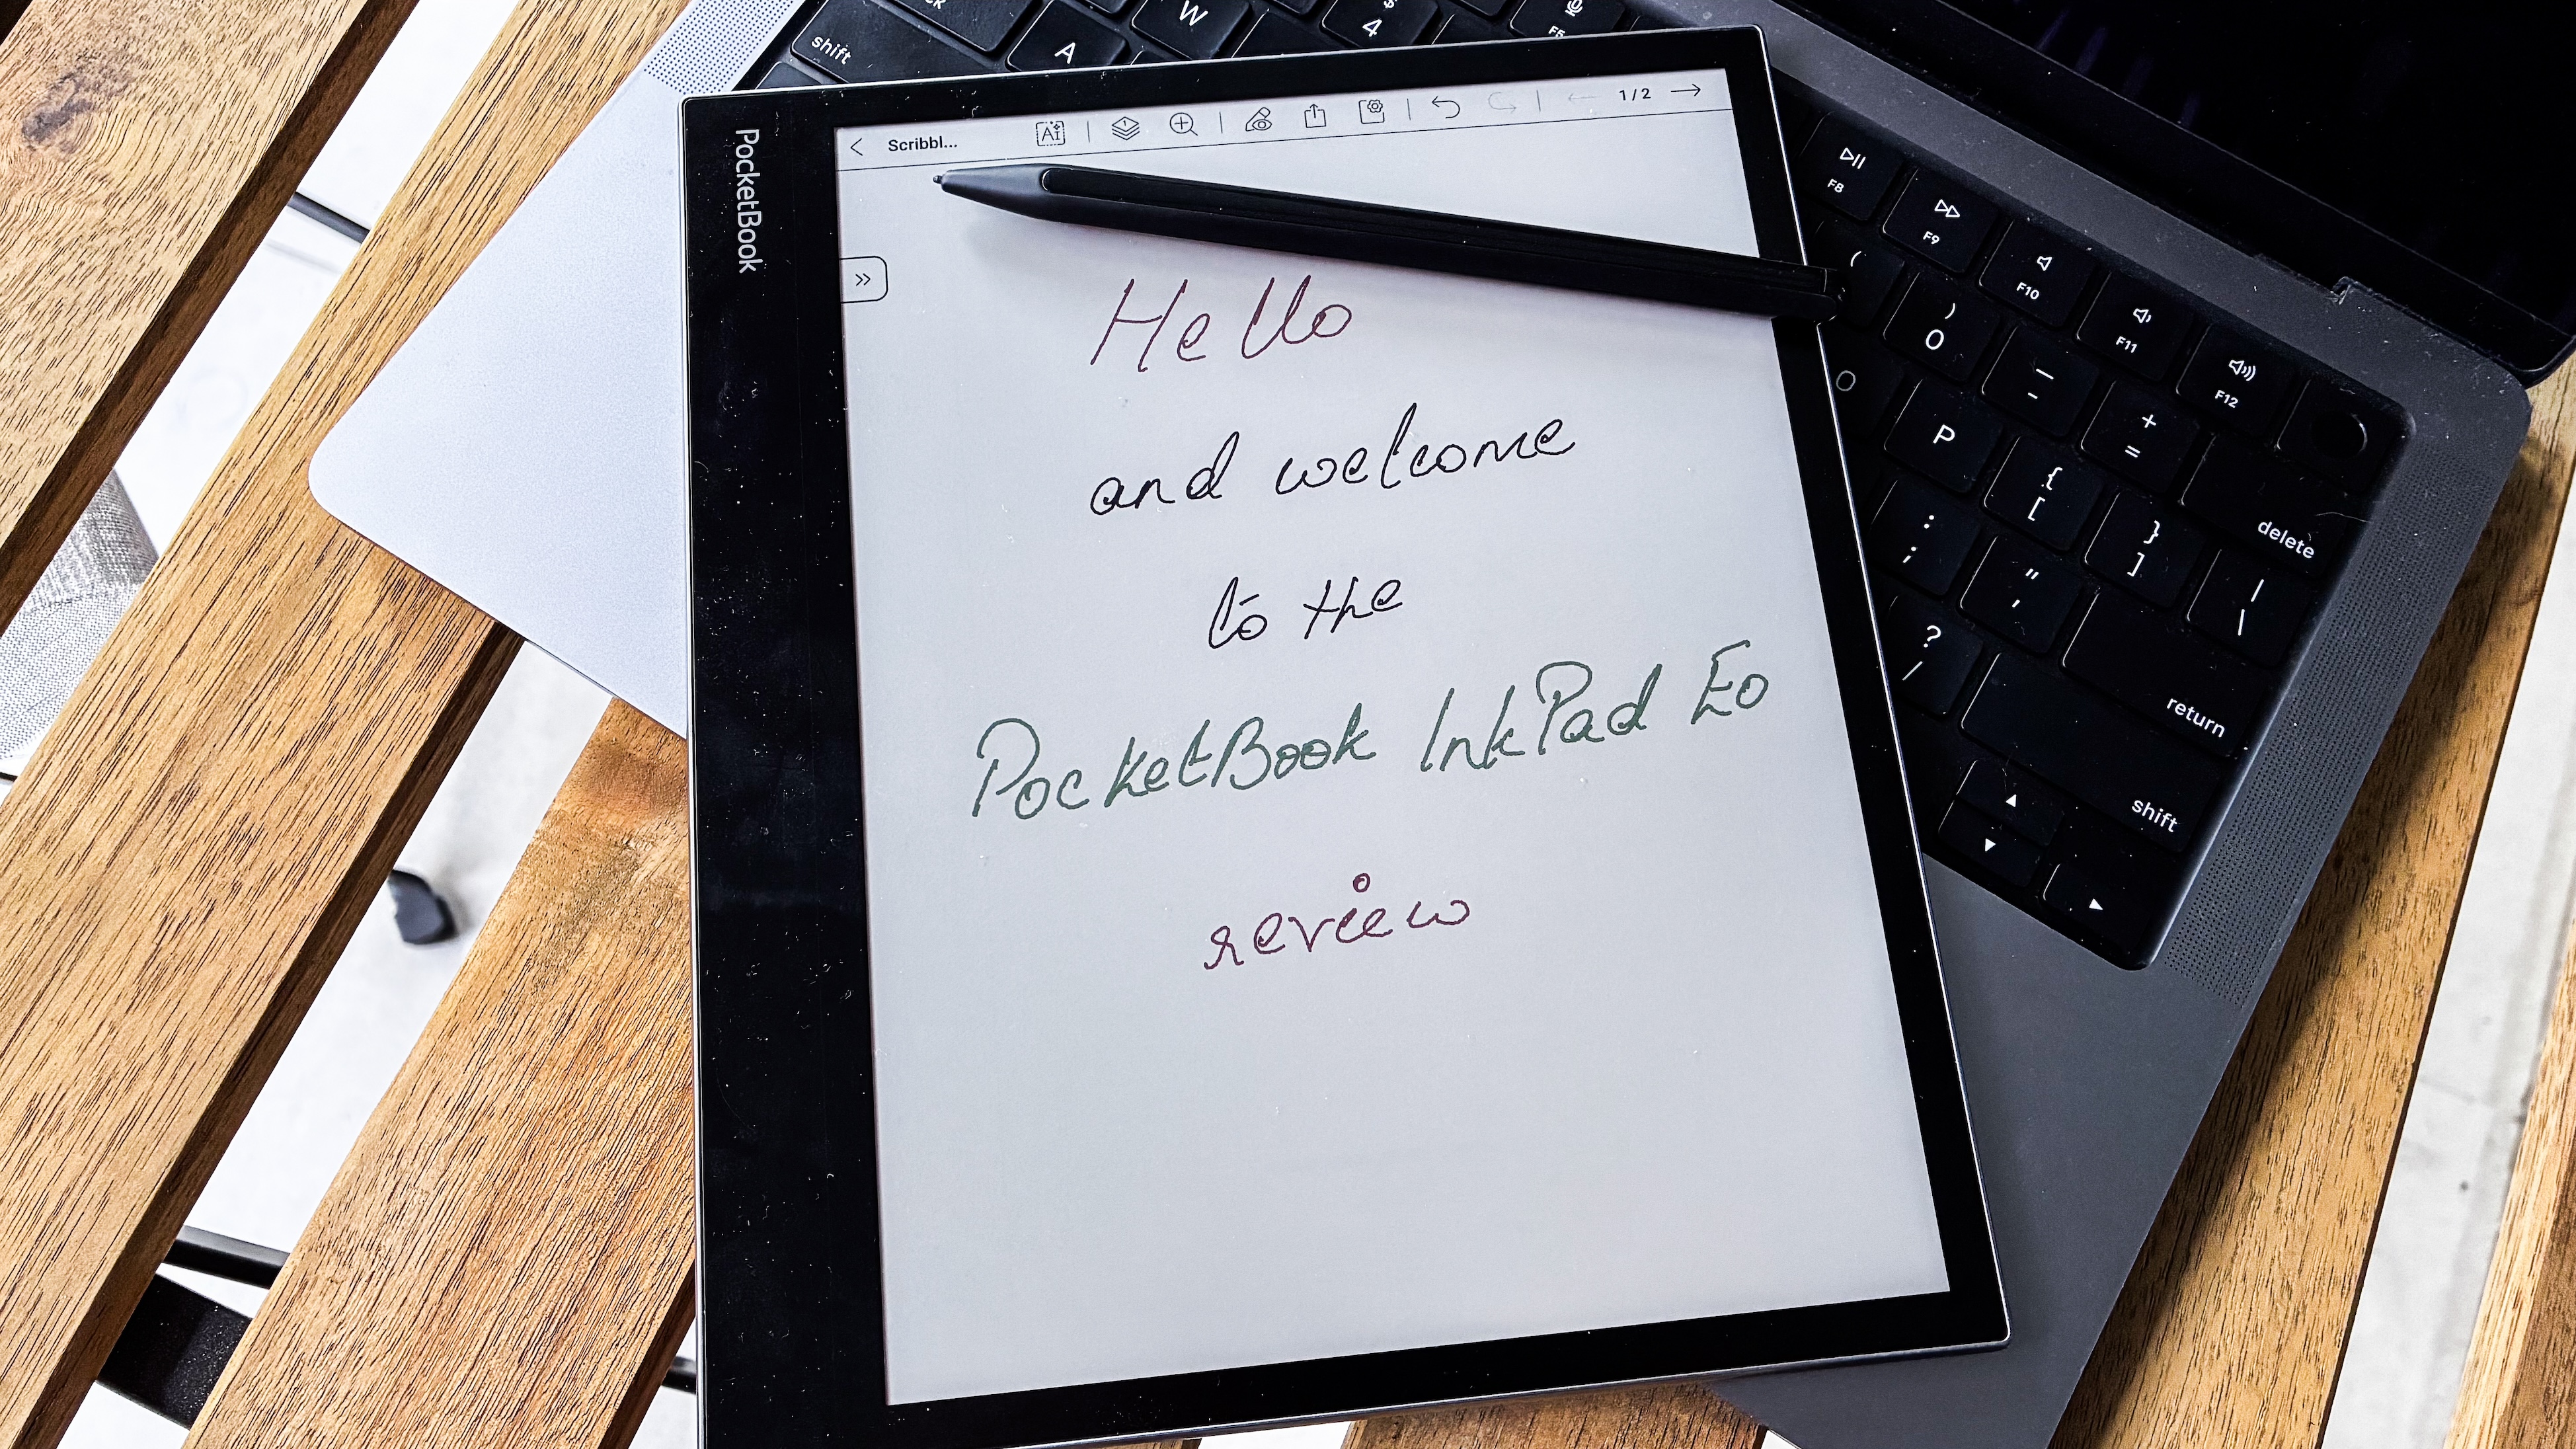 W
$
4
F5
shift
A
PocketBook
Scribbl...
AI
1
1/2
F8
F9
F10
F11
F12
Hello
and welcome
to the
PocketBook InkPad Eo
review
(
)
0
_
-
+
=
delete
O
P
{
[
}
]
|
\
:
;
"
'
return
?
/
shift